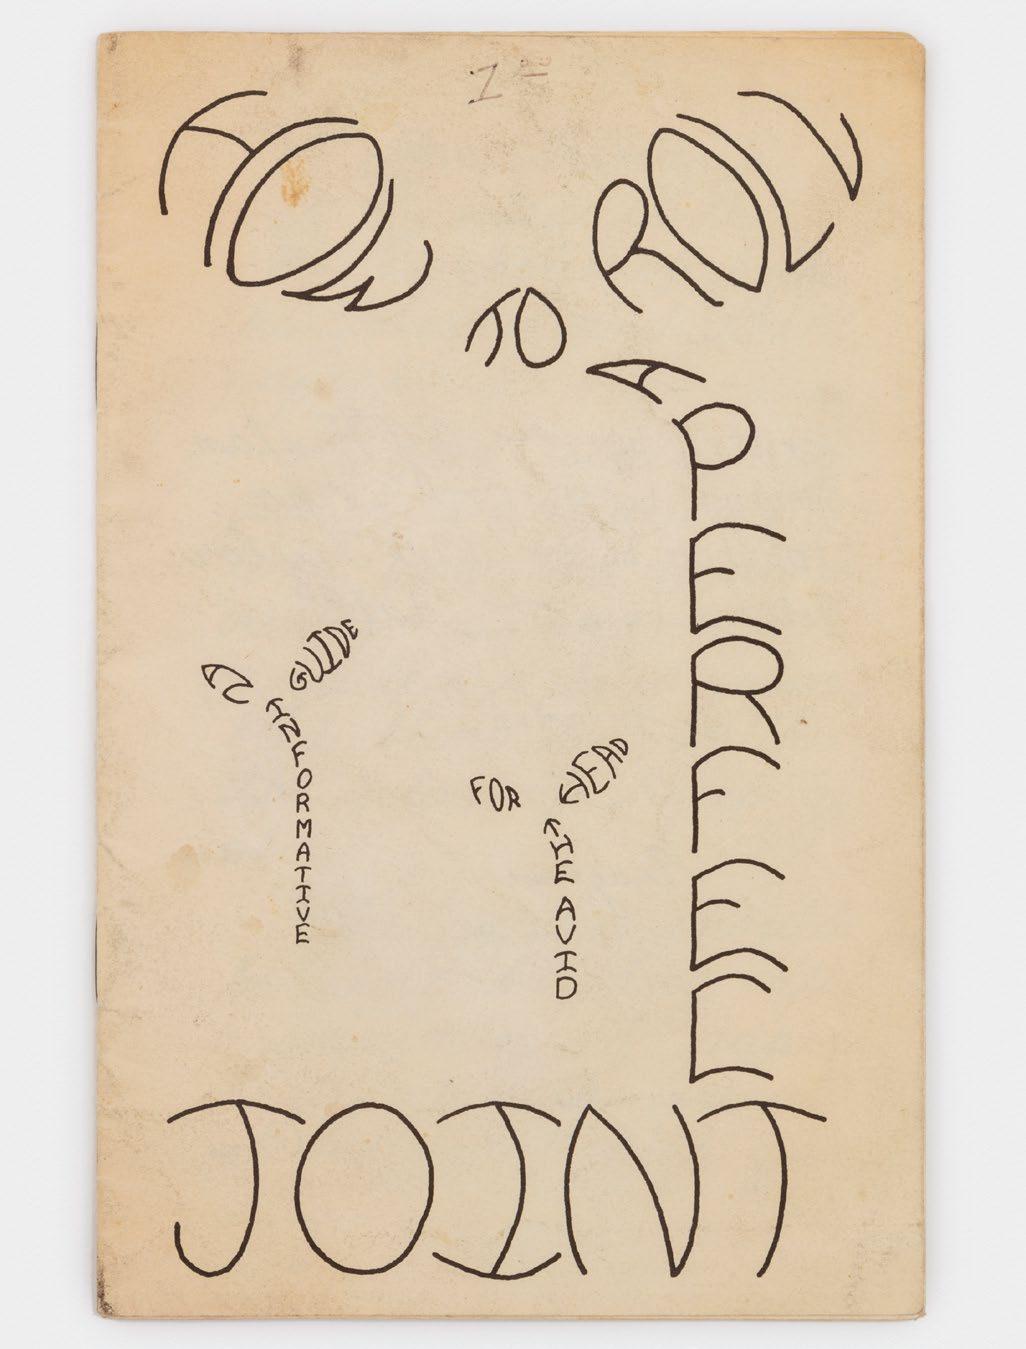 HOW
TO
ROLL
A
PERFECT
JOINT
AN
INFORMATIVE
GUIDE
FOR
THE AVID
HEAD